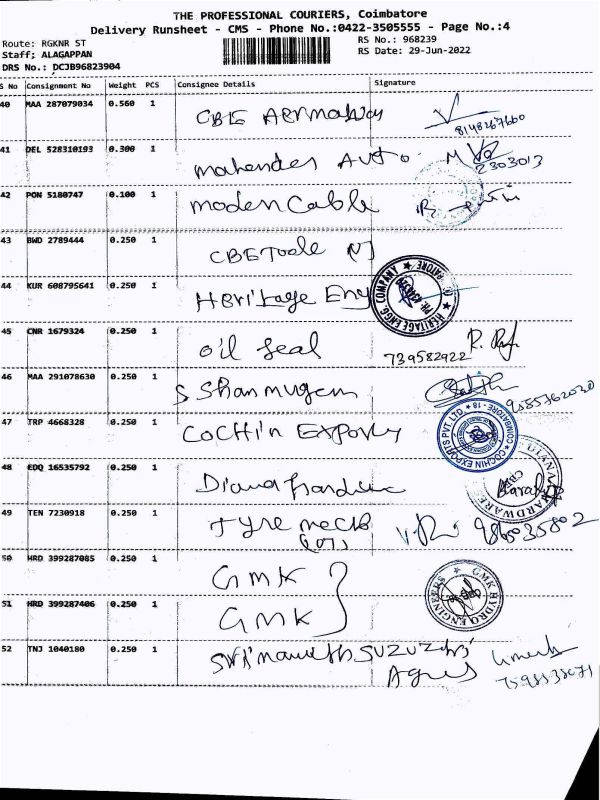 THE PROFESSIONAL COURIERS, Coimbatore
Delivery Runsheet - CMS - Phone No.:0422-3505555 - Page No.:4
Route: RGKNR ST
RS No.: 968239
Staff; ALAGAPPAN
RS Date: 29-Jun-2022
DRS No.: DCJB96823904
S No Consignment No Weight PCS Consignee Details Signature
40 MAA 287079034 0.560 1 CBE Aermaway 8148267660
41 DEL 528310193 0.300 1 Mahender Auto 2303013
42 PON 5180747 0.100 1 Moden Cable
43 BWD 2789444 0.250 1 CBE Toole
44 KUR 608795641 0.250 1 Heritage Eng HERITAGE ENGG. COMPANY
45 CNR 1679324 0.250 1 Oil Seal 739582922
46 MAA 291078630 0.250 1 S Shanmugam 9585762030
47 TRP 4668328 0.250 1 Cochin Exports COCHIN EXPORTS PVT. LTD COIMBATORE - 18
48 EDQ 16535792 0.250 1 Diana HARDWARE
49 TEN 7230918 0.250 1 Tyre Mech 9865035802
50 HRD 399287085 0.250 1 GMK GMK HYDRO ENGINEERS
51 HRD 399287406 0.250 1 GMK
52 TNJ 1040180 0.250 1 Suzuzchi Umesh
Agnes 7598538071